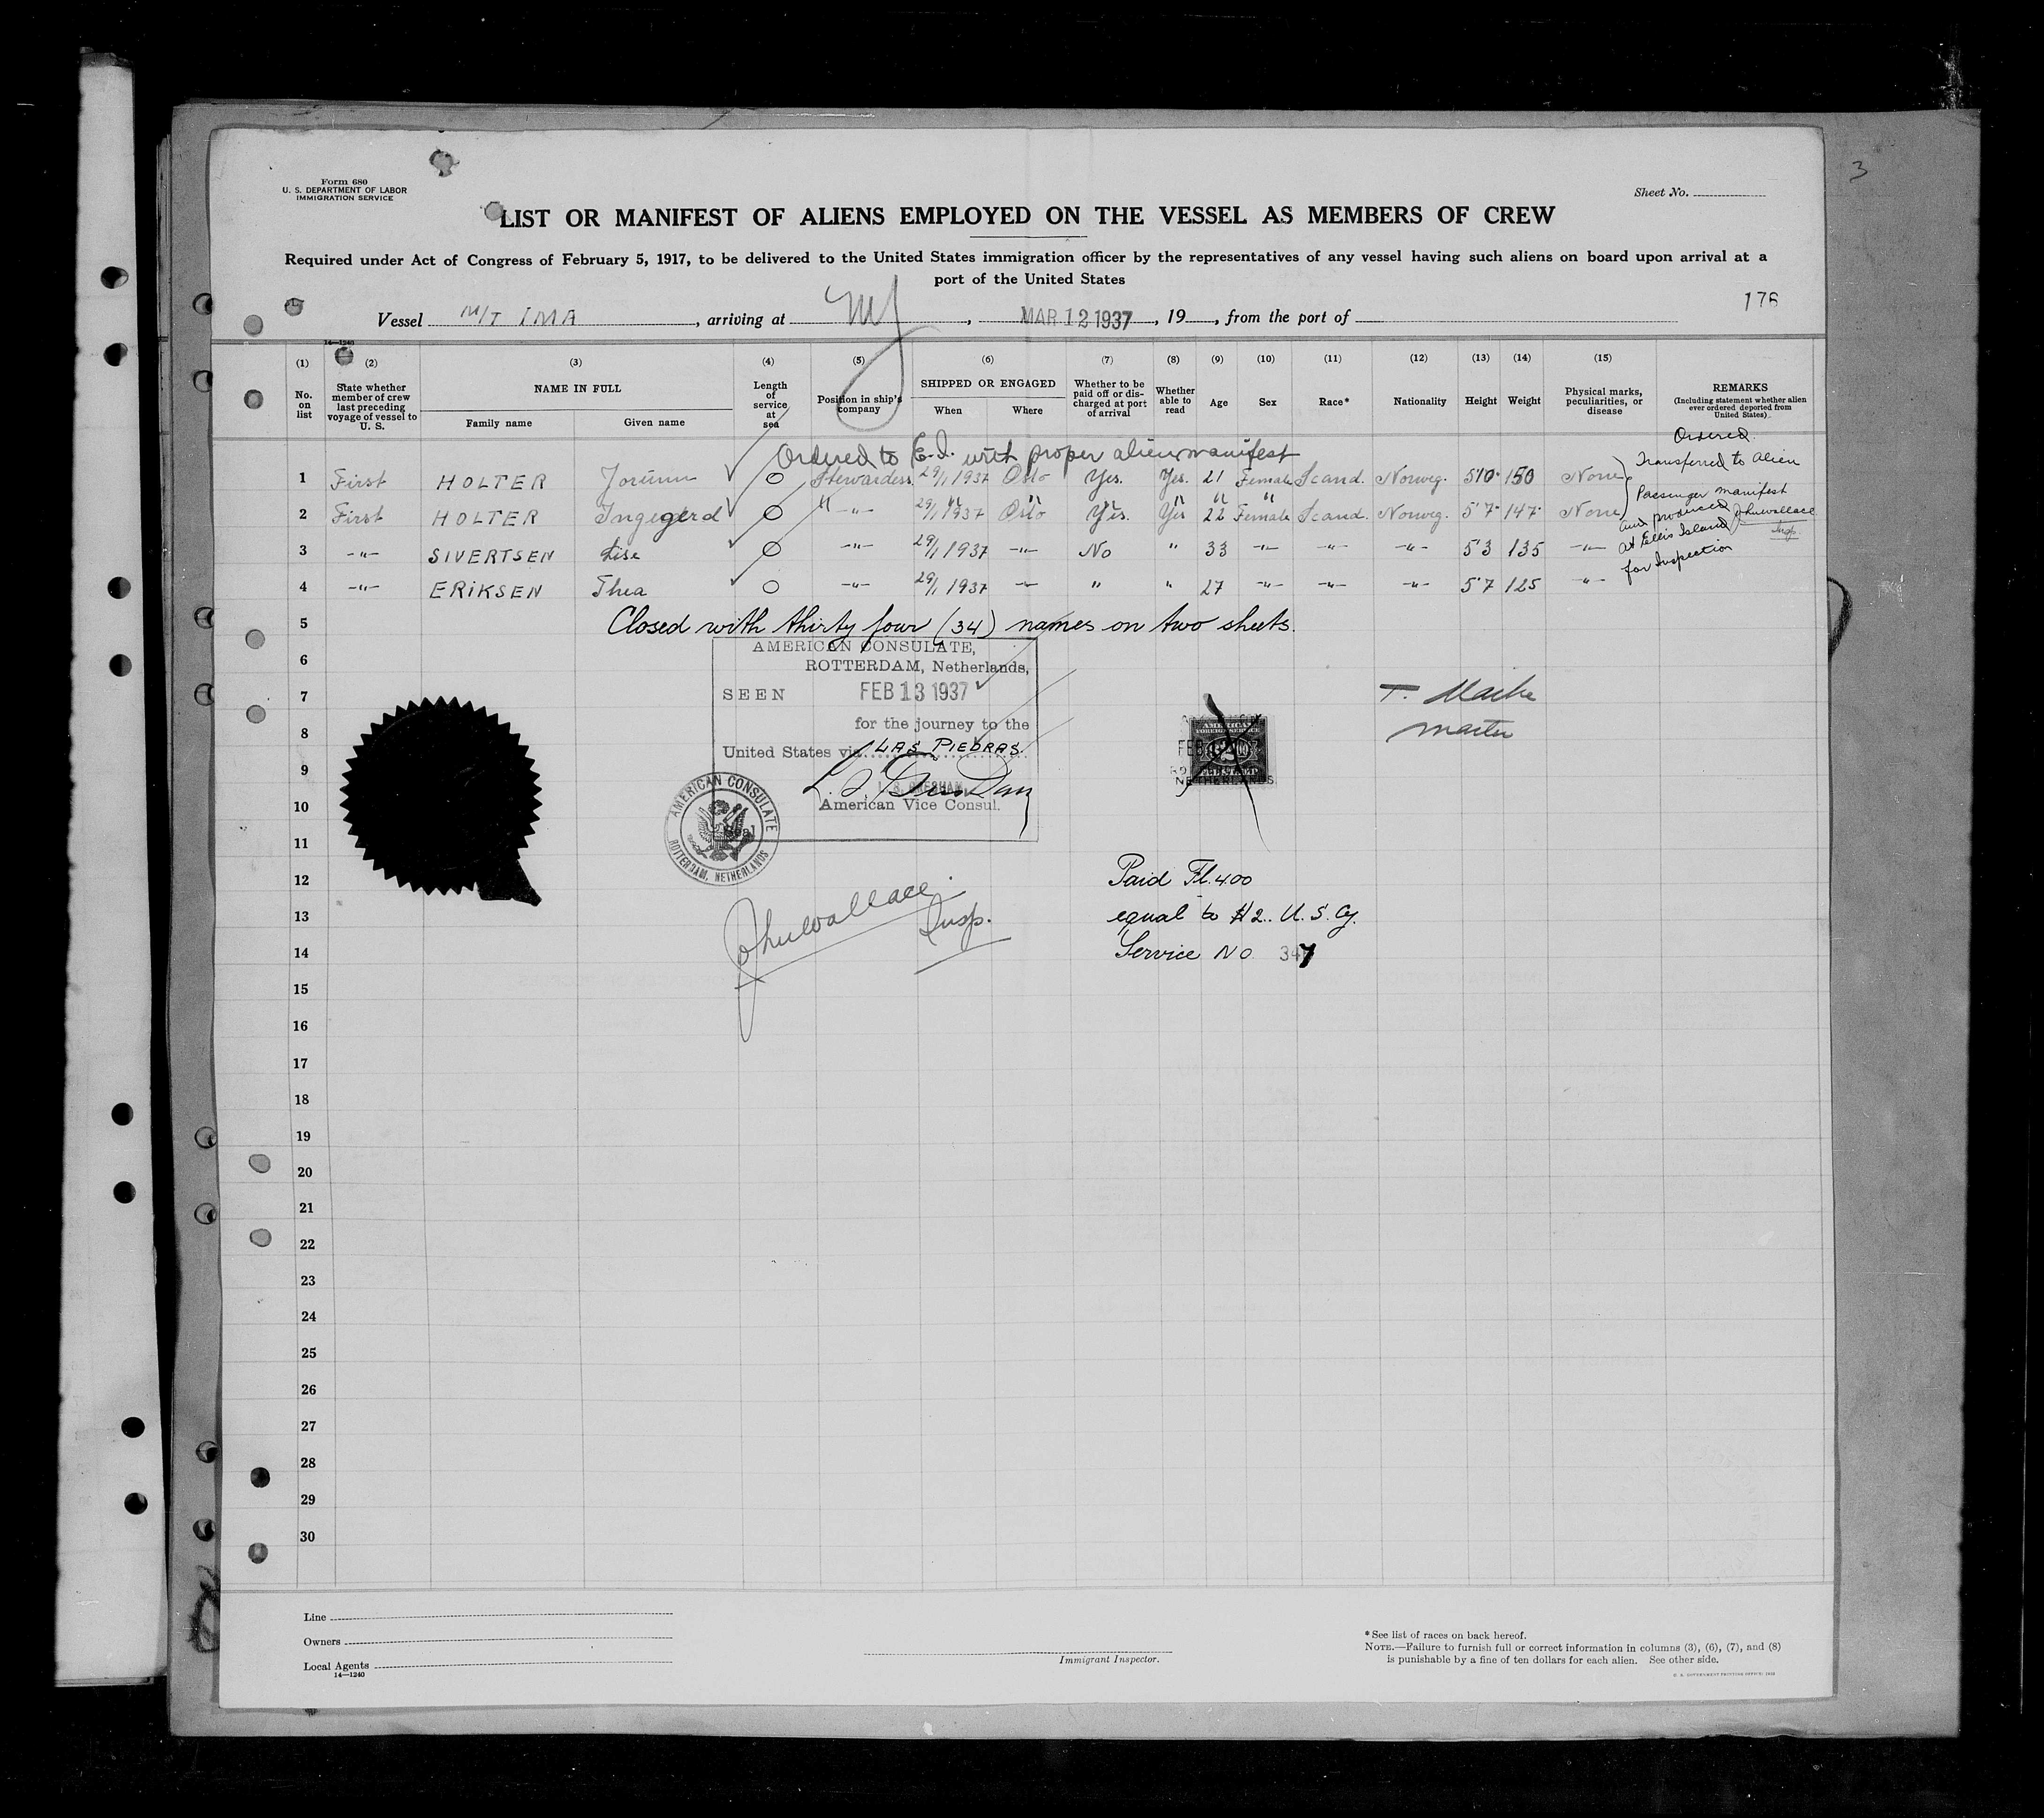 3
Form 680
U. S. DEPARTMENT OF LABOR
IMMIGRATION SERVICE
Sheet No.
LIST OR MANIFEST OF ALIENS EMPLOYED ON THE VESSEL AS MEMBERS OF CREW
Required under Act of Congress of February 5, 1917, to be delivered to the United States immigration officer by the representatives of any vessel having such aliens on board upon arrival at a
port of the United States
176
Vessel M/T IMA, arriving at NY, MAR 12 1937, 19, from the port of
14—1240
(1) (2) (3) (4) (5) (6) (7) (8) (9) (10) (11) (12) (13) (14) (15)
No. on list
State whether member of crew last preceding voyage of vessel to U. S.
NAME IN FULL
Family name
Given name
Length of service at sea
Position in ship's company
SHIPPED OR ENGAGED
When
Where
Whether to be paid off or discharged at port of arrival
Whether able to read
Age
Sex
Race*
Nationality
Height
Weight
Physical marks, peculiarities, or disease
REMARKS
(Including statement whether alien ever ordered deported from United States)
Ordered to E.I. with proper alien manifest
1 First HOLTER Jorunn 0 Stewardess 29/1 1937 Oslo Yes. Yes. 21 Female Scand. Norweg. 5'10" 150 None
2 First HOLTER Ingegerd 0 " -"- 29/1 1937 Oslo Yes. Yes 22 Female Scand. Norweg. 5'7" 147 None
3 -"- SIVERTSEN Lise 0 -"- 29/1 1937 -"- No " 33 -"- -"- -"- 5'3 135 -"-
4 -"- ERIKSEN Thea 0 -"- 29/1 1937 -"- " " 27 -"- -"- -"- 5'7 125 -"-
Ordered
Transferred to Alien
Passenger manifest
and produced
at Ellis Island
for Inspection
Jhuwallace
Insp.
5 Closed with thirty four (34) names on two sheets.
6
7
8
9
10
11
12
13
14
15
16
17
18
19
20
21
22
23
24
25
26
27
28
29
30
AMERICAN CONSULATE,
ROTTERDAM, Netherlands,
SEEN FEB 13 1937
for the journey to the
United States via LAS PIEDRAS.
American Vice Consul.
Seal
AMERICAN CONSULATE
ROTTERDAM, NETHERLANDS
master
AMERICAN
FOREIGN SERVICE
NETHERLANDS
Jhuwallace
Insp.
Paid Fl. 4.00
equal to $2.. U. S. Cy.
Service No 347
Line
Owners
Local Agents
14—1240
Immigrant Inspector.
* See list of races on back hereof.
NOTE.—Failure to furnish full or correct information in columns (3), (6), (7), and (8)
is punishable by a fine of ten dollars for each alien. See other side.